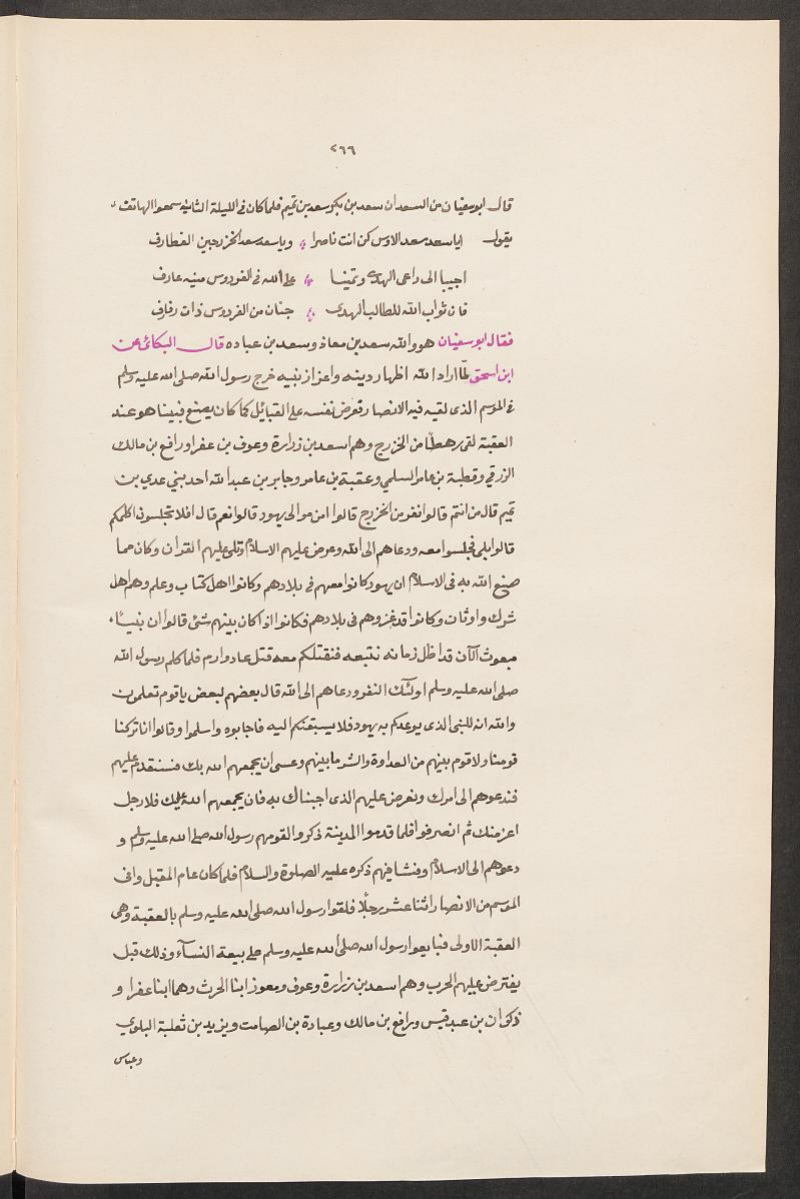 ٢٦٦
قال ابو سفيان من السعدان سعد بن بكر وسعد بن تميم فلما كان فى الليلة الثانية سمعوا الهاتف
يقول ايا سعد سعد الاوس كن انت ناصرا ويا سعد سعد الخزرجين الغطارف
اجيبا الى داعى الهدى وتمنيا على الله فى الفردوس منيه عارف
فان ثواب الله للطالب الهدى جنان من الفردوس ذات رفارف
فقال ابو سفيان هو والله سعد بن معاذ وسعد بن عباده قال البكائى عن
ابن اسحق لما اراد الله اظهار دينه واعزاز نبيه خرج رسول الله صلى الله عليه وسلم
فى الموسم الذى لقيه فيه الانصار فعرض نفسه على القبائل كما كان يصنع فبينا هو عند
العقبة لقى رهطا من الخزرج وهم اسعد بن زرارة وعوف بن عفرا ورافع بن مالك
الزرقي وقطبة بن عامر السلمي وعقبة بن عامر وجابر بن عبد الله احد بني عدي بن
تميم قال من انتم قالوا نفر من الخزرج قالوا امن موالى يهود قالوا نعم قال افلا تجلسون اكلمكم
قالوا بلى فجلسوا معه ودعاهم الى الله وعرض عليهم الاسلام وتلى عليهم القران وكان مما
صنع الله به فى الاسلام ان يهود كانوا معهم فى بلادهم وكانوا اهل كتاب وعلم وهم اهل
شرك واوثان وكانوا قد غزوهم فى بلادهم فكانوا اذا كان بينهم شئ قالوا ان نبيا
مبعوث الآن قد اظل زمانه نتبعه فنقتلكم معه قتل عاد وارم فلما كلم رسول الله
صلى الله عليه وسلم اولئك النفر ودعاهم الى الله قال بعضهم لبعض يا قوم تعلمون
والله انه للنبى الذى يوعدكم به يهود فلا يسبقنكم اليه فاجابوه واسلموا وقالوا انا تركنا
قومنا ولا قوم بينهم من العداوة والشر ما بينهم وعسى ان يجمعهم الله بك فسنقدم عليهم
فندعوهم الى امرك ونعرض عليهم الذى اجبناك به فان يجمعهم الله عليك فلا رجل
اعز منك ثم انصرفوا فلما قدموا المدينة ذكروا لقومهم رسول الله صلى الله عليه وسلم و
دعوهم الى الاسلام وفشا فيهم ذكره عليه الصلوة والسلام فلما كان عام المقبل وافى
الموسم من الانصار اثنا عشر رجلا فلقوا رسول الله صلى الله عليه وسلم بالعقبة وهى
العقبة الاولى فبايعوا رسول الله صلى الله عليه وسلم على بيعة النسآء وذلك قبل
يفترض عليهم الحرب وهم اسعد بن زرارة وعوف ومعوز ابنا الحرث وهما ابنا عفرا و
ذكوان بن عبد قيس ورافع بن مالك وعبادة بن الصامت ويزيد بن ثعلبة البلوي
وعباس